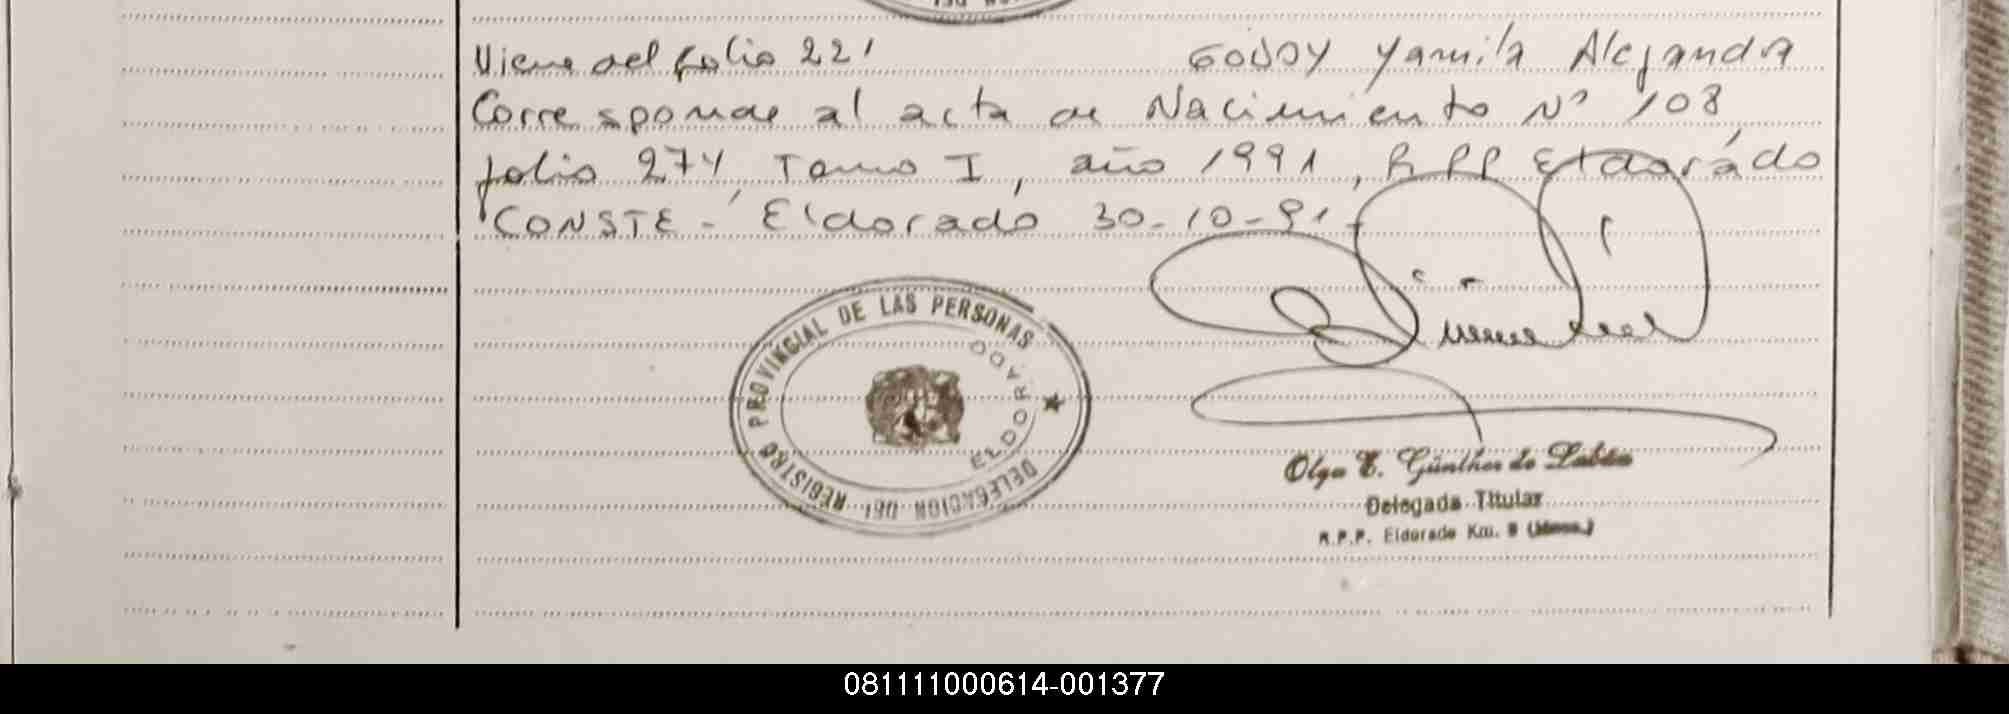 Viene del folio 221 GODOY Yamila Alejandra
Corresponde al acta de Nacimiento Nº 108,
folio 274, Tomo I, año 1991, R P P Eldorado
CONSTE.- Eldorado 30-10-91.-
DELEGACION DEL REGISTRO PROVINCIAL DE LAS PERSONAS
ELDORADO
Olga E. Günther de
Delegada Titular
R.P.P. Eldorado Km. 9 (Mnes.)
081111000614-001377